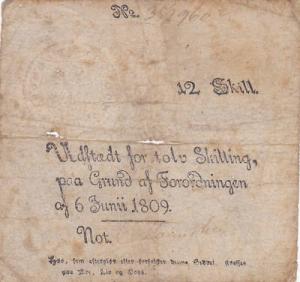 No.
12 Skill.
Udstædt for tolv Skilling,
paa Grund af Forordningen
af 6 Junii 1809.
Not.
Hvo, som efterpier eller forfalsker denne Seddel, straffes
paa Ære, Liv og Gods.